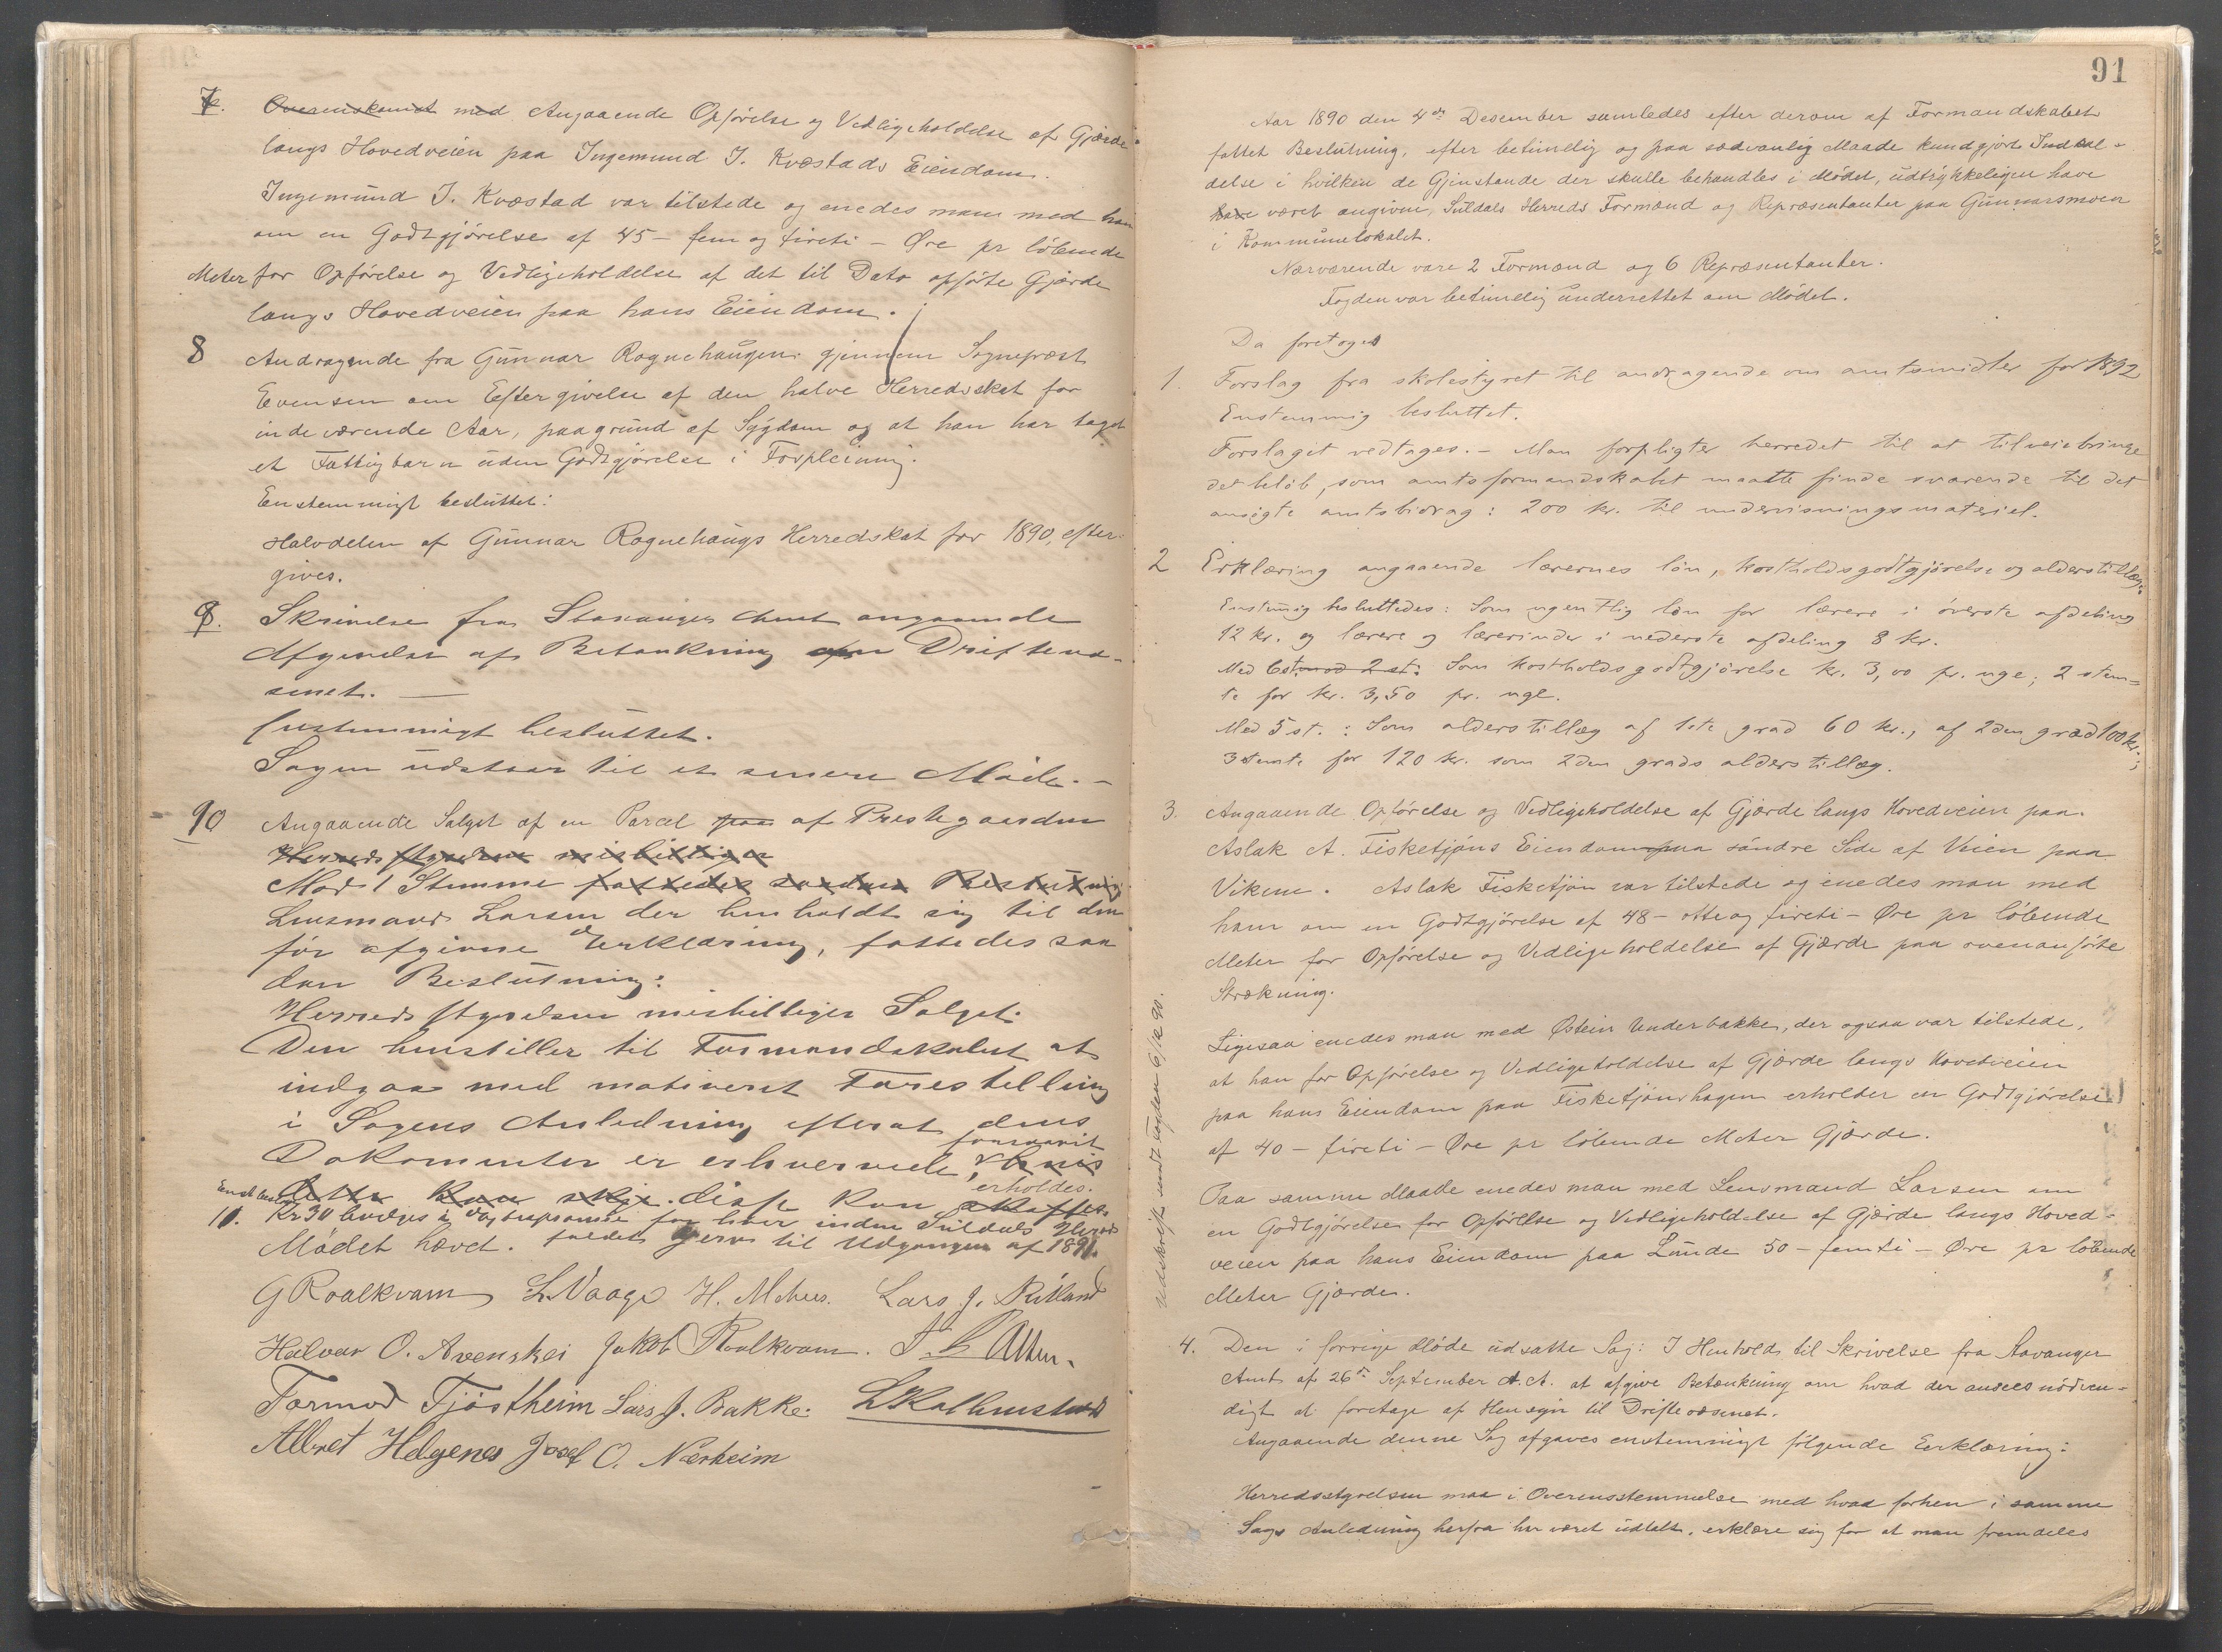 7. Overenskomst med Angaaende Opförelse og Vedligeholdelse af Gjærde
langs Hovedveien paa Ingemund J. Kvæstads Eiendom.
Ingemund J. Kvæstad var tilstede og enedes man med ham
om en Godtgjörelse af 45 – fem og fireti – Öre pr löbende
Meter for Opförelse og Vedligeholdelse af det til Dato opförte Gjærde
langs Hovedveien paa hans Eiendom.
8 Andragende fra Gunnar Roaquehaugen gjennem Sognepræst
Evensen om Eftergivelse af den halve Herredsskat for
indeværende Aar, paagrund af Sygdom og at han har taget
et Fattigbarn uden Godtgjörelse i Forpleining.
Enstemmigt besluttet:
Halvdelen af Gunnar Roaquehaugs Herredskat for 1890, efter-
gives.
9. Skrivelse fra Stavanger Amt angaaende
Afgivelse af Betænkning om Driftevæ-
senet. —
Enstemmigt besluttet.
Sagen udstaar til et senere Möde. –
10 Angaaende Salget af en Parcel paa af Prestegaarden
Herredsstyrelsen misbilliger
Mod 1 Stemme fattedes saadan Beslutning
Lensmand Larsen der henholdt sig til den
för afgivne Erklæring, fattedes saa
dan Beslutning:
Herredsstyrelsen misbilliger Salget.
Den henstiller til Formandskabet at
indgaa med motiveret Forestilling
i Sagens Anledning efterat dens
Dokumenter er erhvervede, forsaavit
dette kan skje. disse kan erholdes.
11. Kr 30 bevilges i for hver inden Suldals Herred
Mödet hævet. fældet Jerv til Udgangen af 1891.
G Roalkvam L. Vaage H. Mehus. Lars J. Rilland
Halvor O. Avenskei Jakob Roalkvam.
Tormod Tjöstheim Lars J. Bakke. L Kolbenstvedt
Albret Helgenes Josef O. Nærheim
91
Aar 1890 den 4de Desember samledes efter derom af Formandskabet
fattet Beslutning, efter betimelig og paa sædvanlig Maade kundgjort Indkal-
delse i hvilken de Gjenstande der skulle behandles i Mödet, udtrykkeligen have
have været angivne, Suldals Herreds Formænd og Repræsentanter paa Gunnarsmoen
i Kommunelokalet.
Nærværende vare 2 Formænd og 6 Repræsentanter.
Fogden var betimelig underrettet om Mödet.
Da foretoges
1. Forslag fra skolestyret til andragende om amtsmidler for 1892
Enstemmig besluttet.
Forslaget vedtages. – Man forpligter herredet til at tilveiebringe
det belöb, som amtsformandskabet maatte finde svarende til det
ansögte amtsbidrag: 200 kr. til undervisningsmateriel.
2 Erklæring angaaende lærernes lön, kostholdsgodtgjörelse og alderstillæg:
Enstemig besluttedes: Som ugentlig lön for lærere i överste afdeling
12 kr. og lærere og lærerinder i nederste afdeling 8 kr.
Med 6 st. mod 2 st: Som kostholdsgodtgjörelse kr. 3,00 pr. uge; 2 stem=
te for kr. 3,50 pr. uge.
Med 5 st.: Som alderstillæg af 1ste grad 60 kr., af 2den grad 100 kr.;
3 stemte for 120 kr. som 2den grads alderstillæg.
3. Angaaende Opförelse og Vedligeholdelse af Gjærde langs Hovedveien paa
Aslak A. Fisketjöns Eiendom paa söndre Side af Veien paa
Vikene. Aslak Fisketjön var tilstede og enedes man med
ham om en Godtgjörelse af 48 – otte og fireti – Öre pr löbende
Meter for Opförelse og Vedligeholdelse af Gjærde paa ovenanförte
Strækning.
Ligesaa enedes man med Östein Underbakke, der ogsaa var tilstede,
at han for Opförelse og Vedligeholdelse af Gjærde langs Hovedveien
paa hans Eiendom paa Fisketjönshagen erholder en Godtgjörelse
af 40 – fireti – Öre pr löbende Meter Gjærde.
Paa samme Maade enedes man med Lensmand Larsen om
en Godtgjörelse for Opförelse og Vedligeholdelse af Gjærde langs Hoved-
veien paa hans Eiendom paa Lunde 50 – femti – Öre pr löbende
Meter Gjærde.
Udskrift sendt Fogden 6/12 90.
4. Den i forrige Möde udsatte Sag: I Henhold til Skrivelse fra Stavanger
Amt af 26de September d.A. at afgive Betænkning om hvad der ansees nödven-
digt at foretage af Hensyn til Driftevæsenet.
Angaaende denne Sag afgaves enstemmigt fölgende Erklæring:
Herredsstyrelsen maa i Overensstemmelse med hvad forhen i samme
Sags Anledning herfra har været udtalt, erklære sig for at man fremdeles